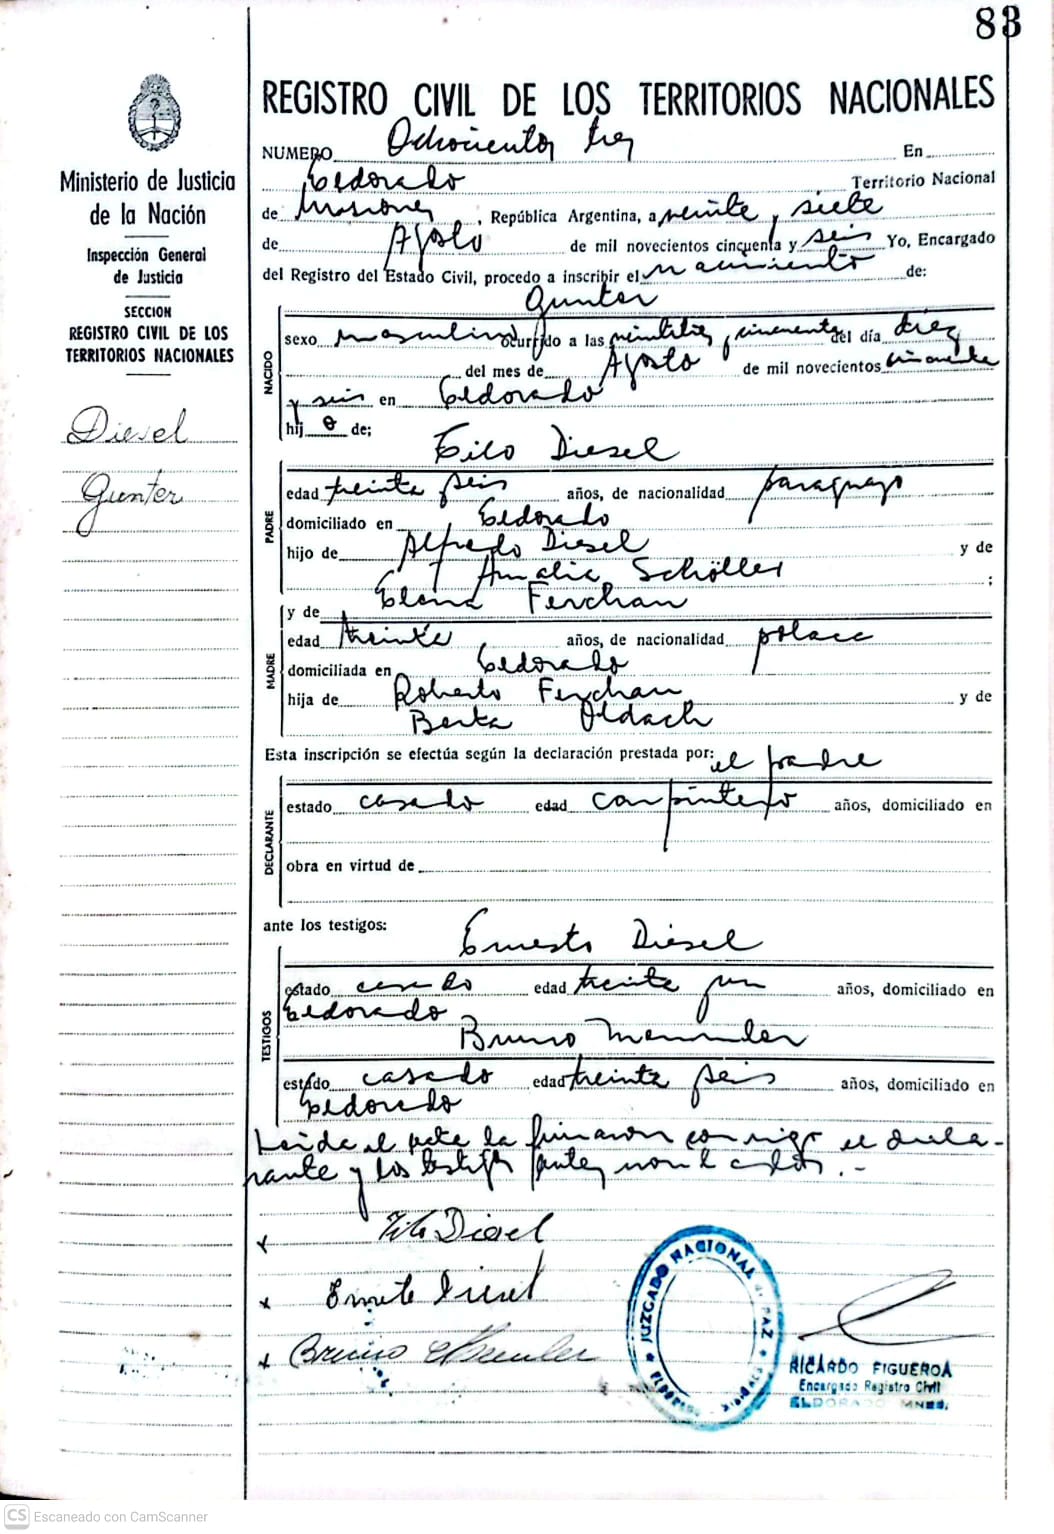 83
REGISTRO CIVIL DE LOS TERRITORIOS NACIONALES
Ministerio de Justicia
de la Nación
Inspección General
de Justicia
SECCION
REGISTRO CIVIL DE LOS
TERRITORIOS NACIONALES
Diesel
Gunter
NUMERO Ochocientos tres En
Eldorado Territorio Nacional
de Misiones, República Argentina, a veinte y siete
de Agosto de mil novecientos cincuenta y seis Yo, Encargado
del Registro del Estado Civil, procedo a inscribir el nacimiento de:
Gunter
NACIDO
sexo masculino ocurrido a las y cincuenta del día diez
del mes de Agosto de mil novecientos cincuenta
y seis en Eldorado
hij o de;
Tilo Diesel
PADRE
edad treinta seis años, de nacionalidad paraguayo
domiciliado en Eldorado
hijo de Alfredo Diesel y de
Amalia Schöller ;
Elena Ferchan
y de
MADRE
edad treinta años, de nacionalidad polaca
domiciliada en Eldorado
hija de Roberto Ferchan y de
Berta Oldach
Esta inscripción se efectúa según la declaración prestada por: el padre
DECLARANTE
estado casado edad carpintero años, domiciliado en
obra en virtud de
ante los testigos:
Ernesto Diesel
TESTIGOS
estado casado edad treinta años, domiciliado en
Eldorado
Bruno
estado casado edad treinta seis años, domiciliado en
Eldorado
Leida el acta la firmaron conmigo el decla-
rante y los testigos antes nombrados.-
x Tilo Diesel
x Ernesto Diesel
x Bruno
JUZGADO NACIONAL de PAZ
ELDORADO
RICARDO FIGUEROA
Encargado Registro Civil
ELDORADO MNES.
CS Escaneado con CamScanner